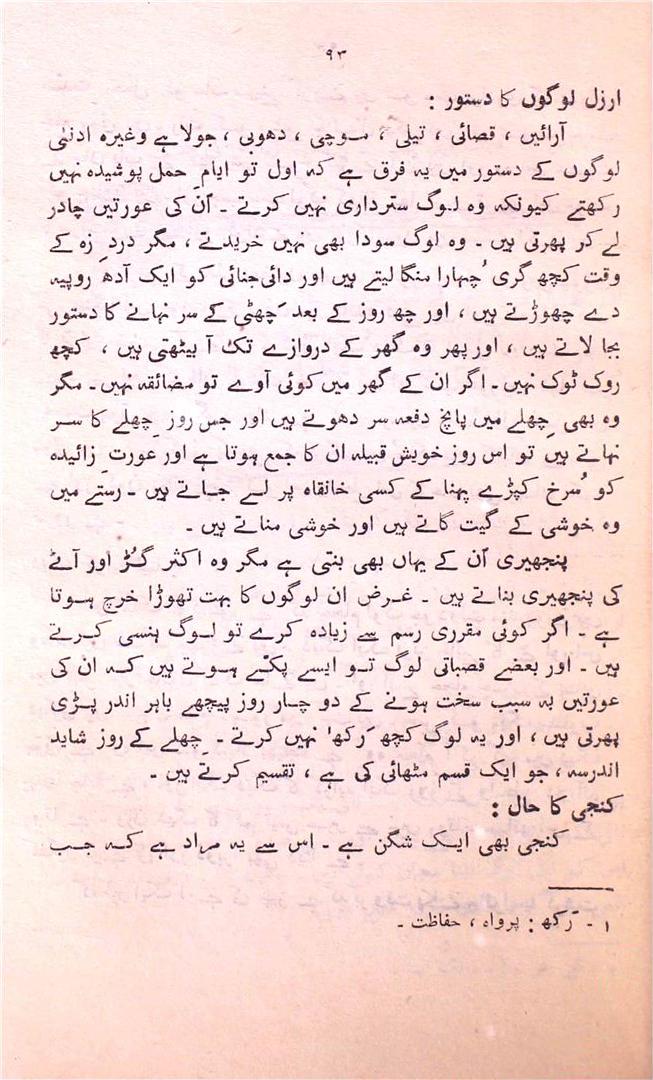 ۹۳
ارزل لوگوں کا دستور :
آرائیں ، قصائی ، تیلی ، موچی ، دھوبی ، جولاہے وغیرہ ادنیٰ
لوگوں کے دستور میں یہ فرق ہے کہ اول تو ایامِ حمل پوشیدہ نہیں
رکھتے کیونکہ وہ لوگ سترداری نہیں کرتے ۔ اُن کی عورتیں چادر
لے کر پھرتی ہیں ۔ وہ لوگ سودا بھی نہیں خریدتے ، مگر دردِ زہ کے
وقت کچھ گری چُہارا منگا لیتے ہیں اور دائی جنائی کو ایک آدھ روپیہ
دے چھوڑتے ہیں ، اور چھ روز کے بعد چَھٹی کے سر نہانے کا دستور
بجا لاتے ہیں ، اور پھر وہ گھر کے دروازے تک آ بیٹھتی ہیں ، کچھ
روک ٹوک نہیں ۔ اگر ان کے گھر میں کوئی آوے تو مضائقہ نہیں ۔ مگر
وہ بھی چِھلے میں پانچ دفعہ سر دھوتے ہیں اور جس روز چِھلے کا سر
نہاتے ہیں تو اس روز خویش قبیلہ ان کا جمع ہوتا ہے اور عورتِ زائیدہ
کو سُرخ کپڑے پہنا کے کسی خانقاہ پر لے جاتے ہیں ۔ رستے میں
وہ خوشی کے گیت گاتے ہیں اور خوشی مناتے ہیں ۔
پنجھیری اُن کے یہاں بھی بنتی ہے مگر وہ اکثر گُڑ اور آٹے
کی پنجھیری بناتے ہیں ۔ غرض ان لوگوں کا بہت تھوڑا خرچ ہوتا
ہے ۔ اگر کوئی مقرری رسم سے زیادہ کرے تو لوگ ہنسی کرتے
ہیں ۔ اور بعضے قصباتی لوگ تو ایسے پکّے ہوتے ہیں کہ ان کی
عورتیں بہ سبب سخت ہونے کے دو چار روز پیچھے باہر اندر پڑی
پھرتی ہیں ، اور یہ لوگ کچھ رَکھ۱ نہیں کرتے ۔ چِھلے کے روز شاید
اندرسہ ، جو ایک قسم مٹھائی کی ہے ، تقسیم کرتے ہیں ۔
کنجی کا حال :
کنجی بھی ایک شگن ہے ۔ اس سے یہ مراد ہے کہ جب
۱ ۔ رَکھ : پرواہ ، حفاظت ۔